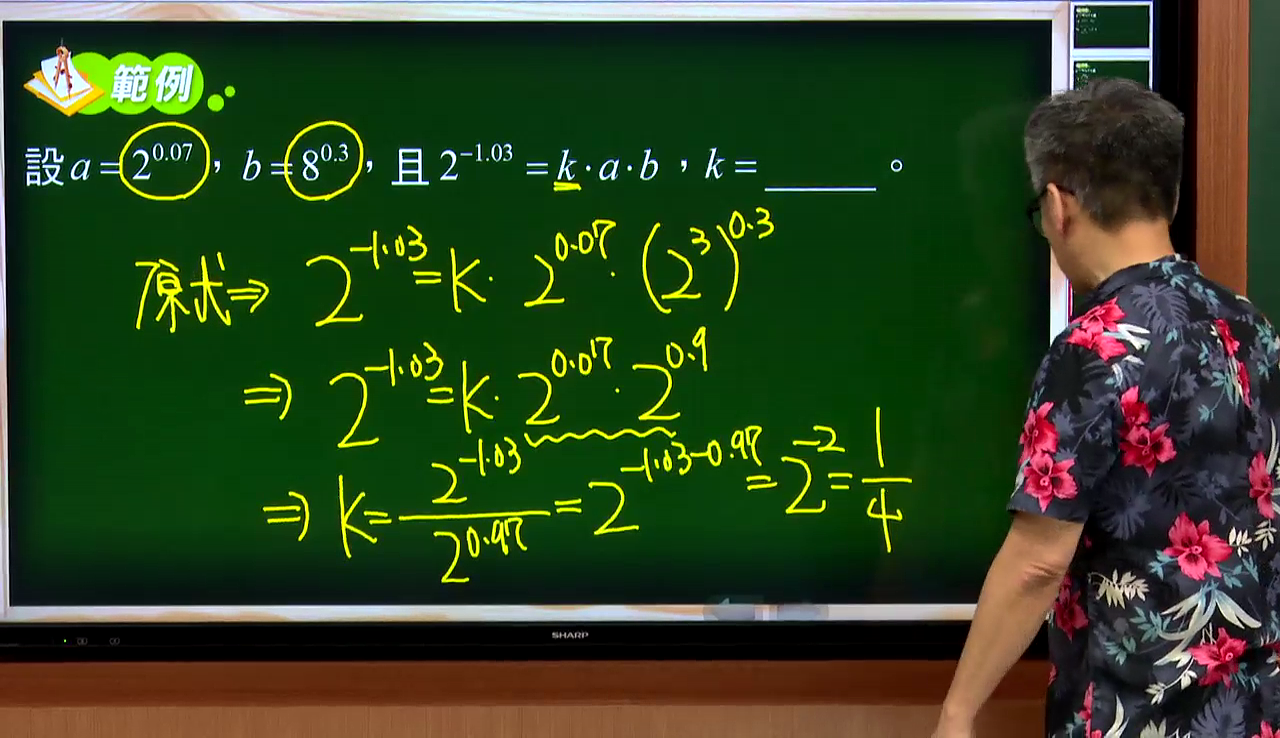 範例
設 a = 2^0.07, b = 8^0.3, 且 2^-1.03 = k·a·b, k = ______。
原式⇒ 2^-1.03 = k· 2^0.07 · (2^3)^0.3
⇒ 2^-1.03 = k· 2^0.07 · 2^0.9
⇒ k = 2^-1.03 / 2^0.97 = 2^-1.03-0.97 = 2^-2 = 1/4
SHARP